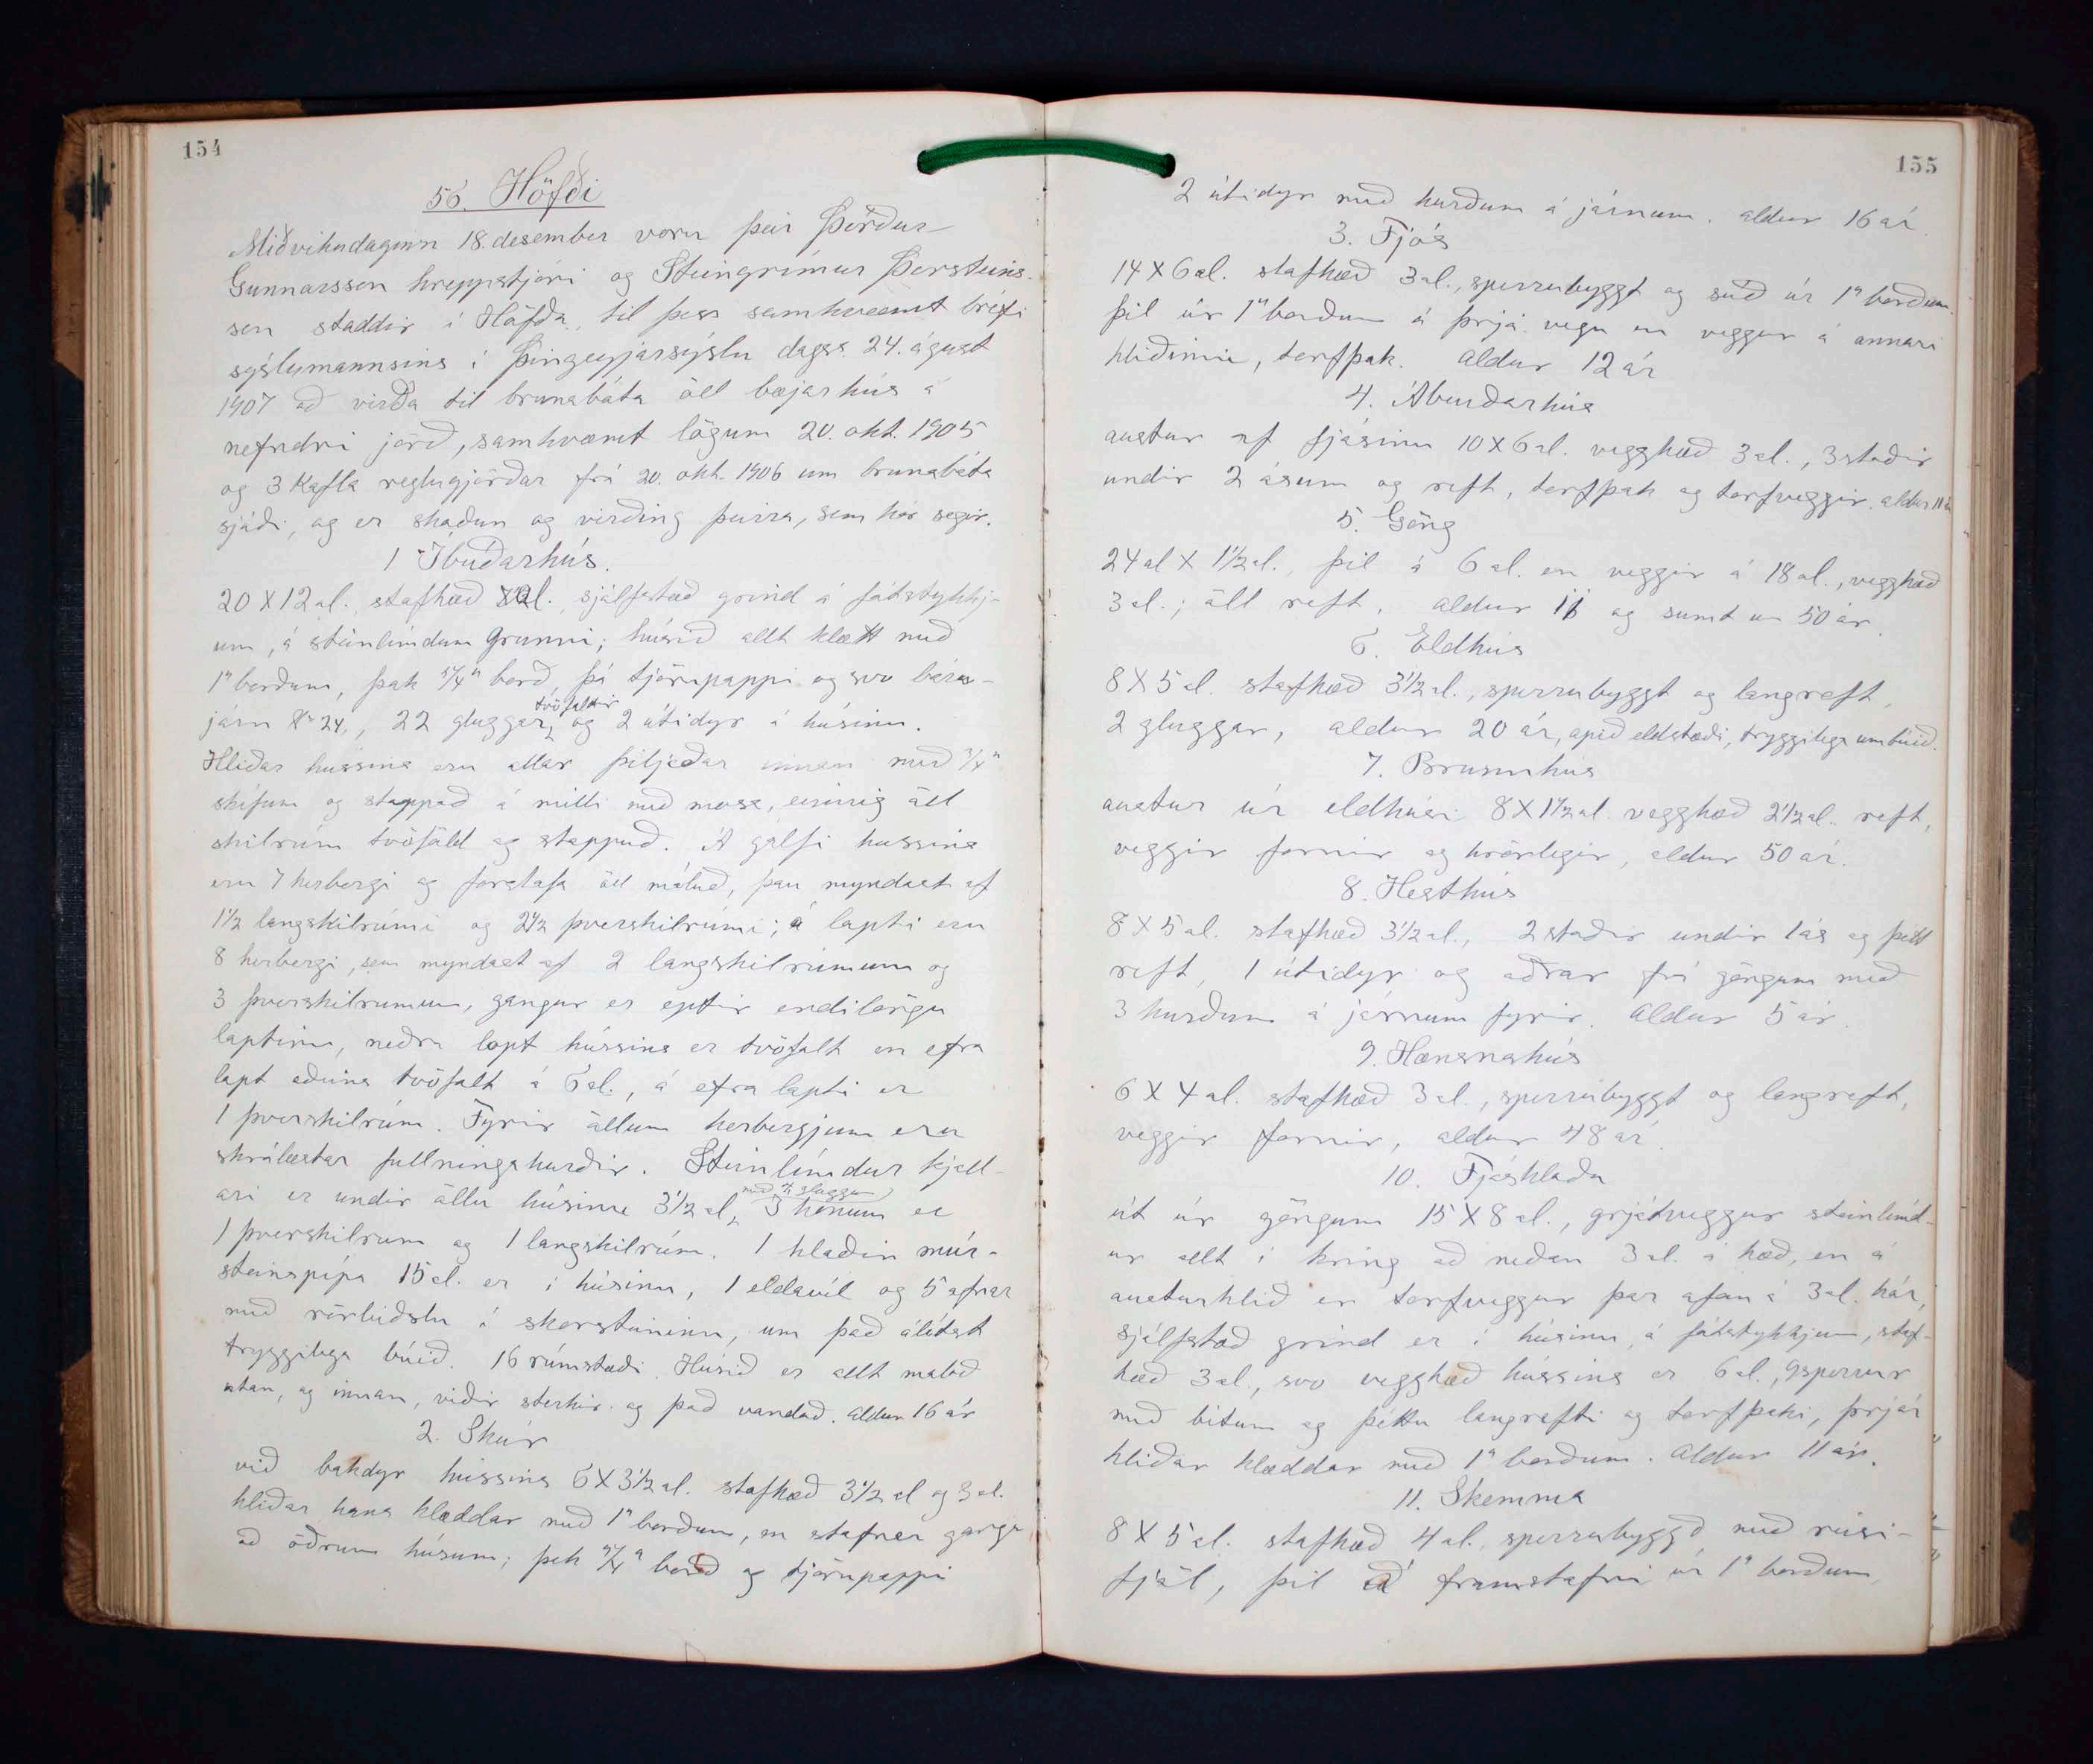 154
56. Höfði
Miðvikudaginn 18. desember voru þeir Þórður
Gunnarsson hreppstjóri og Steingrímur Þorsteins-
son staddir í Höfða, til þess samkvæmt bréfi
sýslumannsins í Þingeyjarsýslu dags. 24. ágúst
1907 að virða til brunabóta öll bæjarhús á
nefndri jörð, samkvæmt lögum 20. okt. 1905
og 3 kafla reglugjörðar frá 20. okt. 1906 um brunabóta
sjóði, og er skoðun og virðing þeirra, sem hér segir.
1 Íbúðarhús.
20 X 12 al. stafhæð al. sjálfstæð grind á fótstykkj-
um, á steinlímdum grunni; húsið allt klætt með
1" borðum, þak 5/4" borð, þá tjörupappi og svo báru-
járn No 24, 22 gluggar, tvöfaldir og 2 útidyr á húsinu.
Hliðar hússins eru allar þiljaðar innan með 3/4"
skífum og stappað á milli með mosa, einnig öll
skilrúm tvöföld og stoppuð. Á gólfi hússins
eru 7 herbergi og forstofa öll máluð, þau myndast af
1 1/2 langskilrúmi og 2 1/2 þverskilrúmi; á lopti eru
8 herbergi, sem myndast af 2 langskilrúmum og
3 þverskilrúmum, gangur er eptir endilöngu
loptinu, neðra lopt hússins er tvöfalt en efra
lopt aðeins tvöfalt á 6 al., á efra lopti er
1 þverskilrúm. Fyrir öllum herbergjum eru
skrálæstar fullningahurðir. Steinlímdur kjall-
ari er undir öllu húsinu 3 1/2 al, með gluggum, í honum er
1 þverskilrúm og 1 langskilrúm. 1 hlaðin múr-
steinspípa 15 al. er í húsinu, 1 eldavél og 5 ofnar
með rörleiðslu í skorsteininn, um það álítst
tryggilega búið. 16 rúmstæði. Húsið er allt málað
utan, og innan, viðir sterkir og það vandað. Aldur 16 ár
2. Skúr
við bakdyr hússins 6 X 3 1/2 al. stafhæð 3 1/2 al og 3 al.
hliðar hans klæddar með 1" borðum, en stafnar ganga
að öðrum húsum; þak 5/4" borð og tjörupappi
155
2 útidyr með hurðum á járnum. aldur 16 ár.
3. Fjós
14 X 6 al. stafhæð 3 al., sperrubyggt og súð úr 1" borðum.
þil úr 1" borðum á þrjá vegu en veggur á annari
hliðinni, torfþak. Aldur 12 ár
4. Áburðarhús
austur af fjósinu 10 X 6 al. vegghæð 3 al., 3 stoðir
undir 2 ásum og reft, torfþak og torfveggir. aldur 11 á
5. Göng
24 al X 1 1/2 al., þil á 6 al. en veggir á 18 al., vegghæð
3 al.; öll reft. Aldur og sumt um 50 ár.
6. Eldhús
8 X 5 al. stafhæð 3 1/2 al., sperrubyggt og langreft,
2 gluggar, aldur 20 ár, opið eldstæði, tryggilega umbúið.
7. Brunnhús
austur úr eldhúsi 8 X 1 1/2 al. vegghæð 2 1/2 al. reft,
veggir fornir og hrörlegir, aldur 50 ár.
8. Hesthús
8 X 5 al. stafhæð 3 1/2 al., 2 stoðir undir 1 ás og þétt
reft, 1 útidyr og aðrar frá göngum með
3 hurðum á járnum fyrir. Aldur 5 ár.
9. Hænsnahús
6 X 4 al. stafhæð 3 al., sperrubyggt og langreft,
veggir fornir, aldur 48 ár.
10. Fjóshlaða
út úr göngum 15 X 8 al., grjótveggur steinlímd-
ur allt í kring að neðan 3 al. á hæð, en á
austurhlið er torfveggur þar ofan á 3 al. hár,
sjálfstæð grind er í húsinu á fótstykkjum, staf-
hæð 3 al., svo vegghæð hússins er 6 al., 9 sperrur
með bitum og þéttu langrefti og torfþaki, þrjár
hliðar klæddar með 1" borðum. Aldur 11 ár.
11. Skemma
8 X 5 al. stafhæð 4 al. sperrubyggð með reisi-
fjöl, þil á framstafni úr 1" borðum